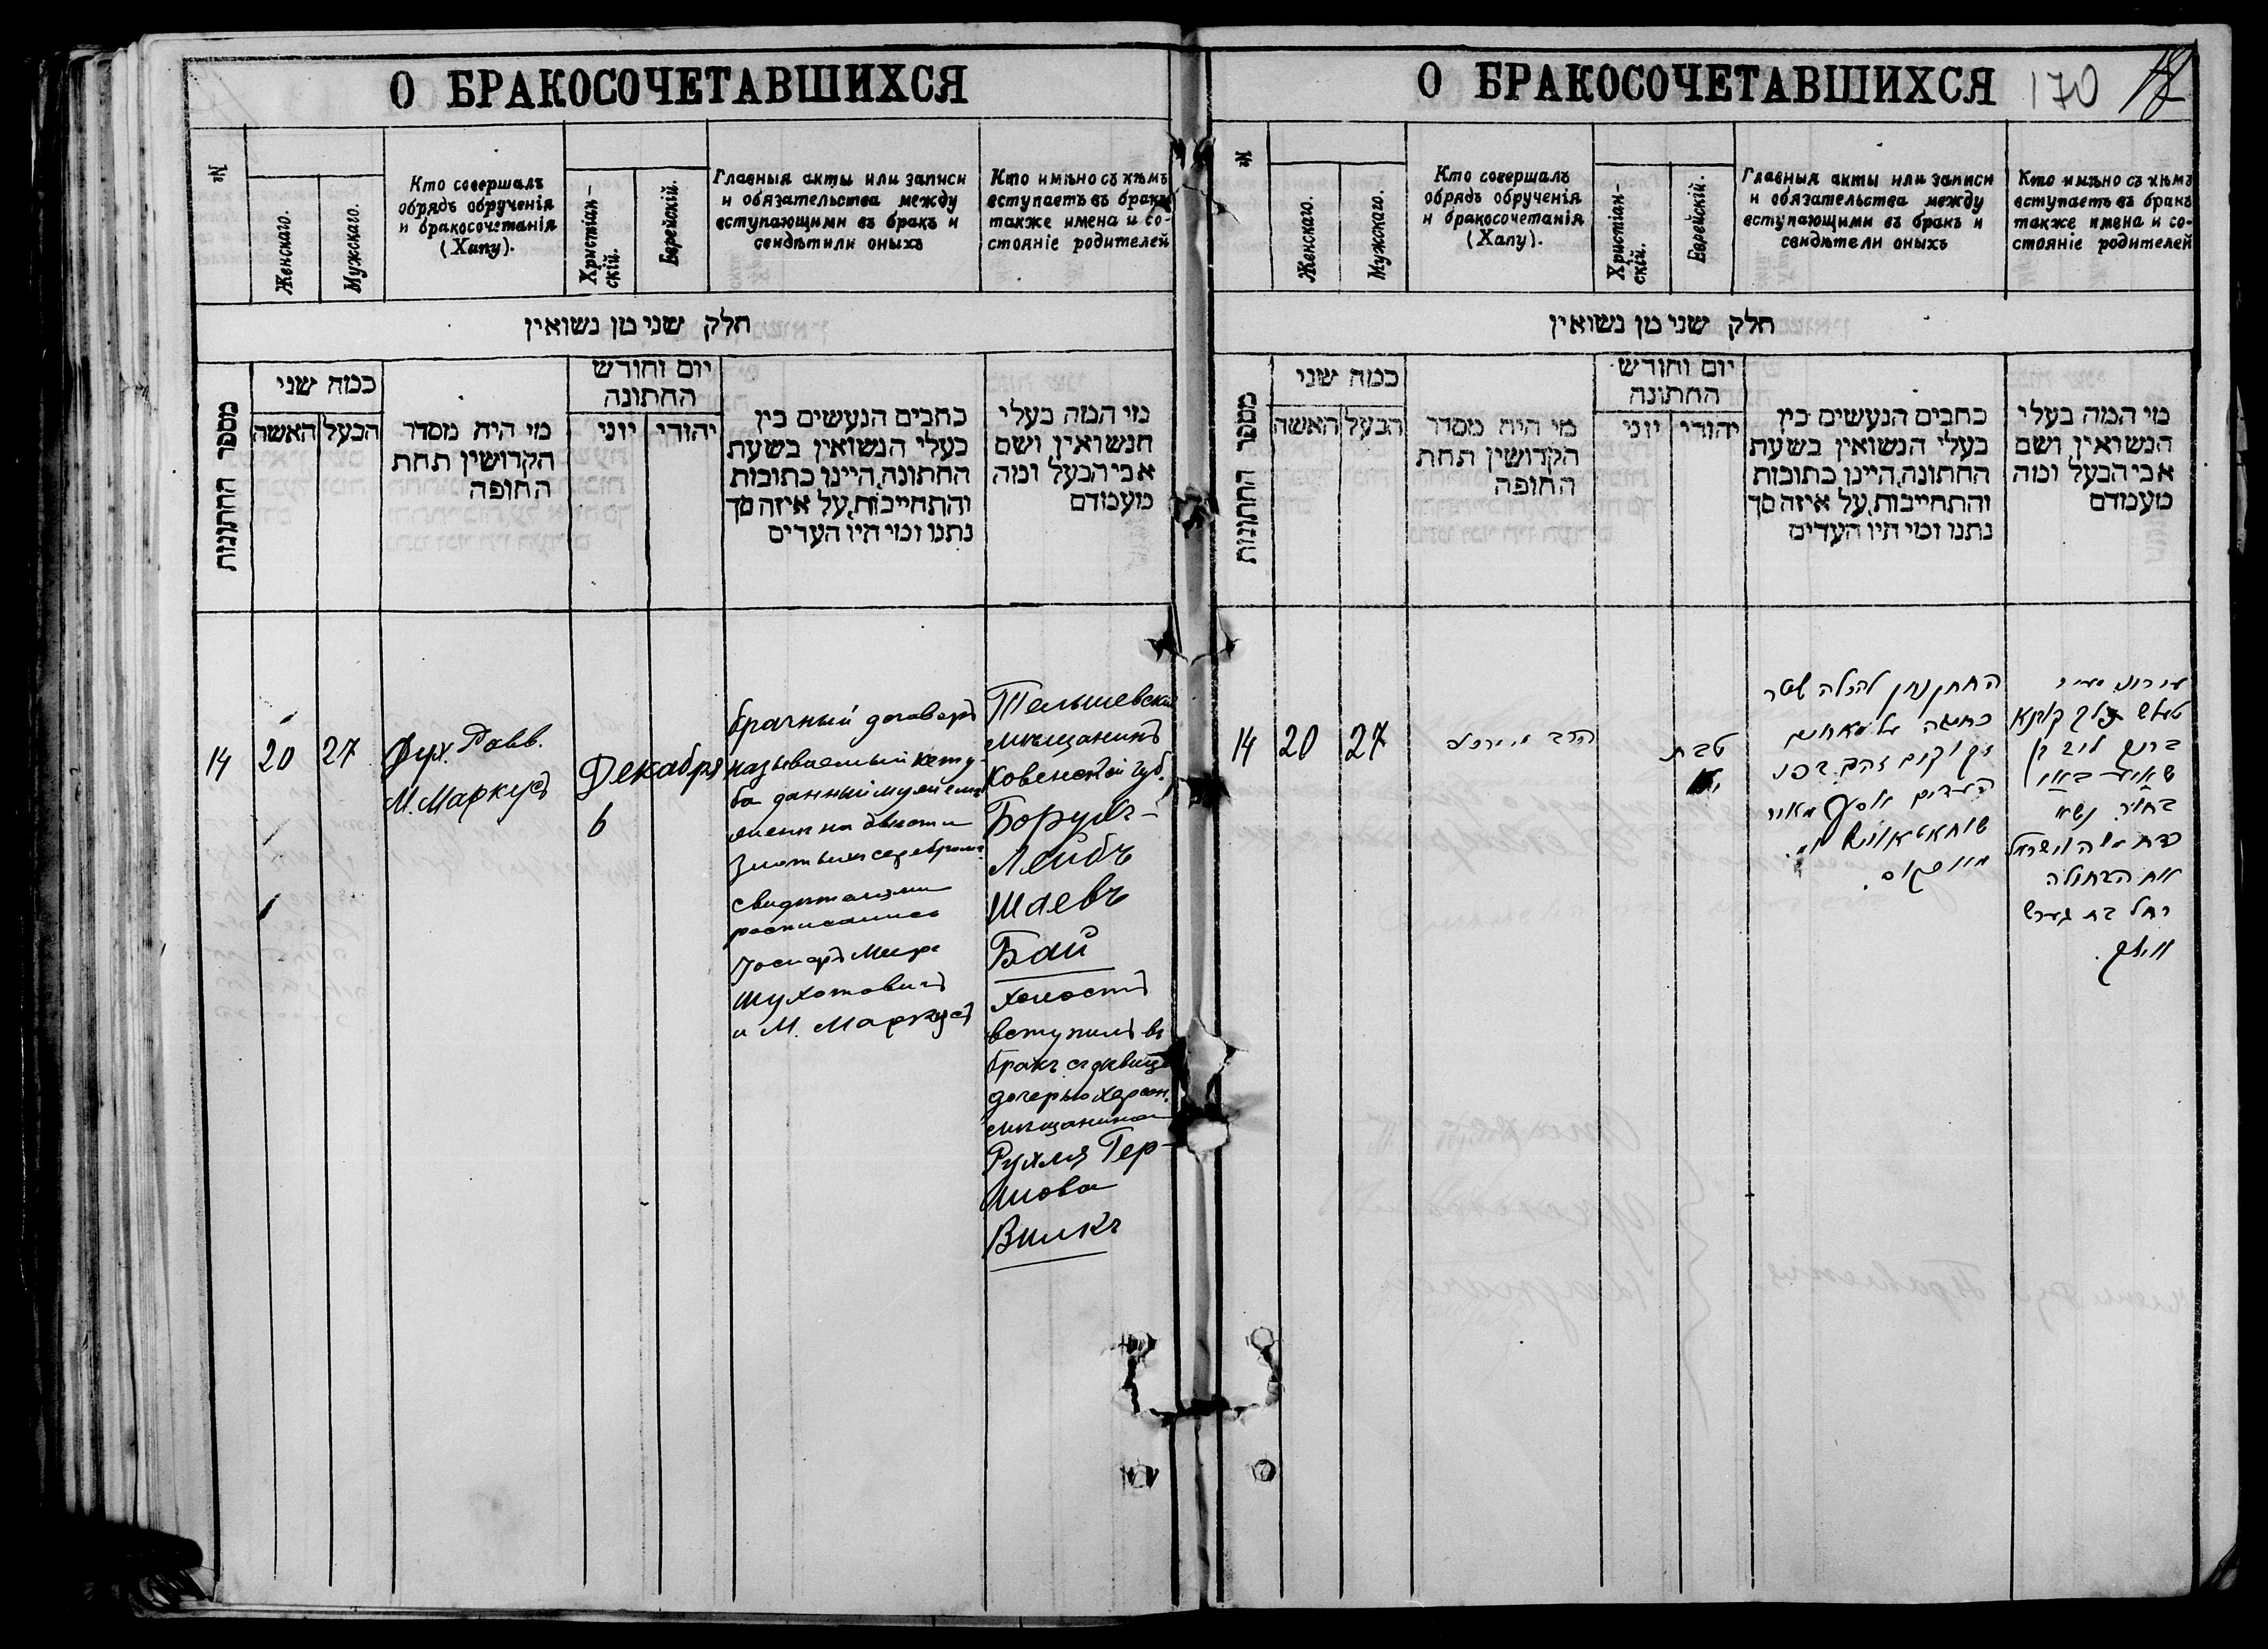 О БРАКОСОЧЕТАВШИХСЯ
№
Женскаго.
Мужскаго.
Кто совершалъ
обрядъ обрученія
и бракосочетанія
(Хапу).
Христіан-
скій.
Еврейскій.
Главныя акты или записи
и обязательства между
вступающими въ бракъ и
свидѣтили оныхъ
Кто имѣно съ кѣмъ
вступаетъ въ бракъ
также имена и со-
стояніе родителей
חלק שני מן נשואין
מספר החתונות
כמה שני
האשה
הבעל
מי היה מסדר
הקדושין תחת
החופה
יום וחודש
החתונה
יוני
יהודי
כתבים הנעשים בין
בעלי הנשואין בשעת
החתונה, היינו כתובות
והתחייבות, על איזה סך
נתנו ומי היו העדים
מי המה בעלי
הנשואין, ושם
אבי הבעל ומה
מעמדם
14
20
27
Дух. Равв.
М. Маркусъ
Декабря
6
брачный договоръ
называемый кету-
ба данный мужемъ
свидѣтелями
росписались
Шухотовичъ
и М. Маркусъ
Тельшевскій
мѣщанинъ
Ковенской губ.
Борухъ-
Лейбъ
Шаевъ
Бай
холостъ
вступилъ въ
бракъ съ дѣвицей
дочерью Херсон.
мѣщанина
Рухля Гер-
шова
Вилкъ
О БРАКОСОЧЕТАВШИХСЯ
170
№
Женскаго.
Мужскаго.
Кто совершалъ
обрядъ обрученія
и бракосочетанія
(Хапу).
Христіан-
скій.
Еврейскій.
Главныя акты или записи
и обязательства между
вступающими въ бракъ и
свидѣтели оныхъ
Кто имѣно съ кѣмъ
вступаетъ въ бракъ
также имена и со-
стояніе родителей
חלק שני מן נשואין
מספר החתונות
כמה שני
האשה
הבעל
מי היה מסדר
הקדושין תחת
החופה
יום וחודש
החתונה
יוני
יהודי
כתבים הנעשים בין
בעלי הנשואין בשעת
החתונה, היינו כתובות
והתחייבות, על איזה סך
נתנו ומי היו העדים
מי המה בעלי
הנשואין, ושם
אבי הבעל ומה
מעמדם
14
20
27
הרב
טבת
החתן נתן להכלה שטר
כתובה על מאתים
זקוקים זהב
העדים יוסף מאיר
ברוך ליב בן
בחור נשא
כדת משה וישראל
את הבתולה
רחל בת גערש